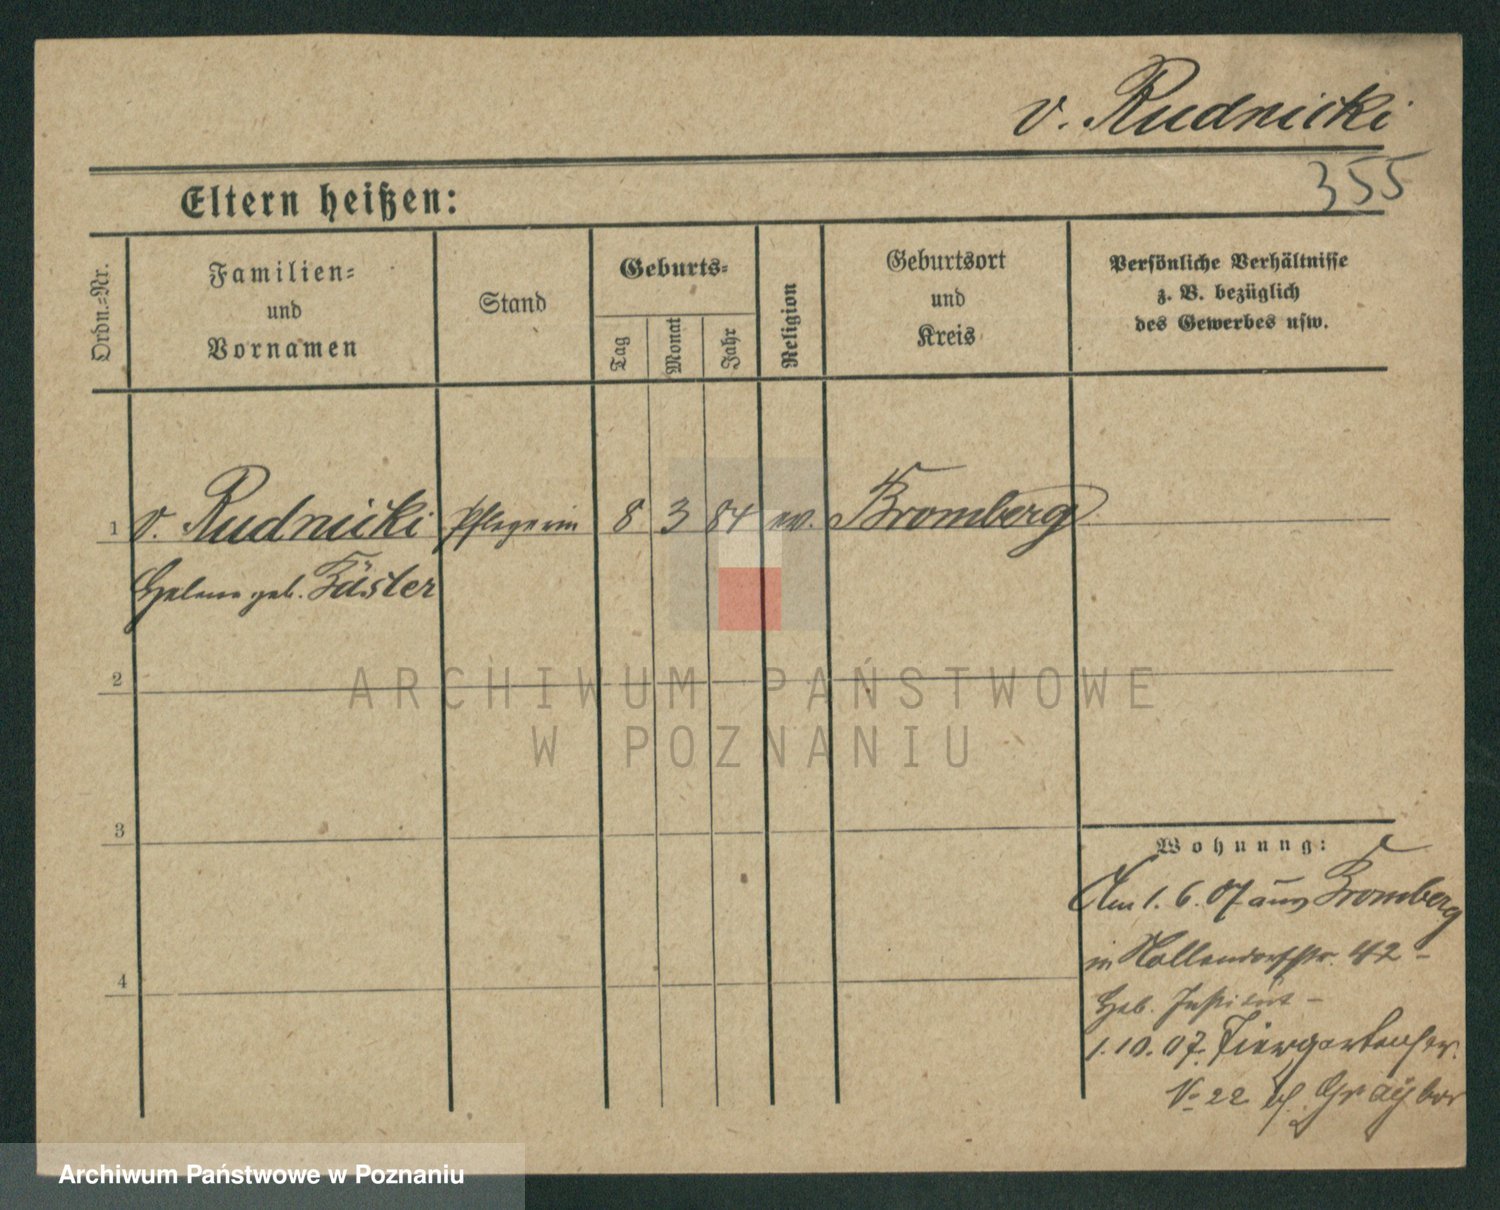 v. Rudnicki
355
Eltern heißen:
Ordn.-Nr.
Familien-
und
Vornamen
Stand
Geburts-
Tag
Monat
Jahr
Religion
Geburtsort
und
Kreis
Persönliche Verhältnisse
z. B. bezüglich
des Gewerbes usw.
1 v. Rudnicki Pflegerin 8 3 84 ev. Bromberg
Helene geb. Küster
2
3
4
Wohnung:
Am 1. 6. 07 aus Bromberg
in Nollendorfstr. 42 -
Heb. Institut -
1.10.07. Tiergartenstr.
22
ARCHIWUM PAŃSTWOWE
W POZNANIU
Archiwum Państwowe w Poznaniu